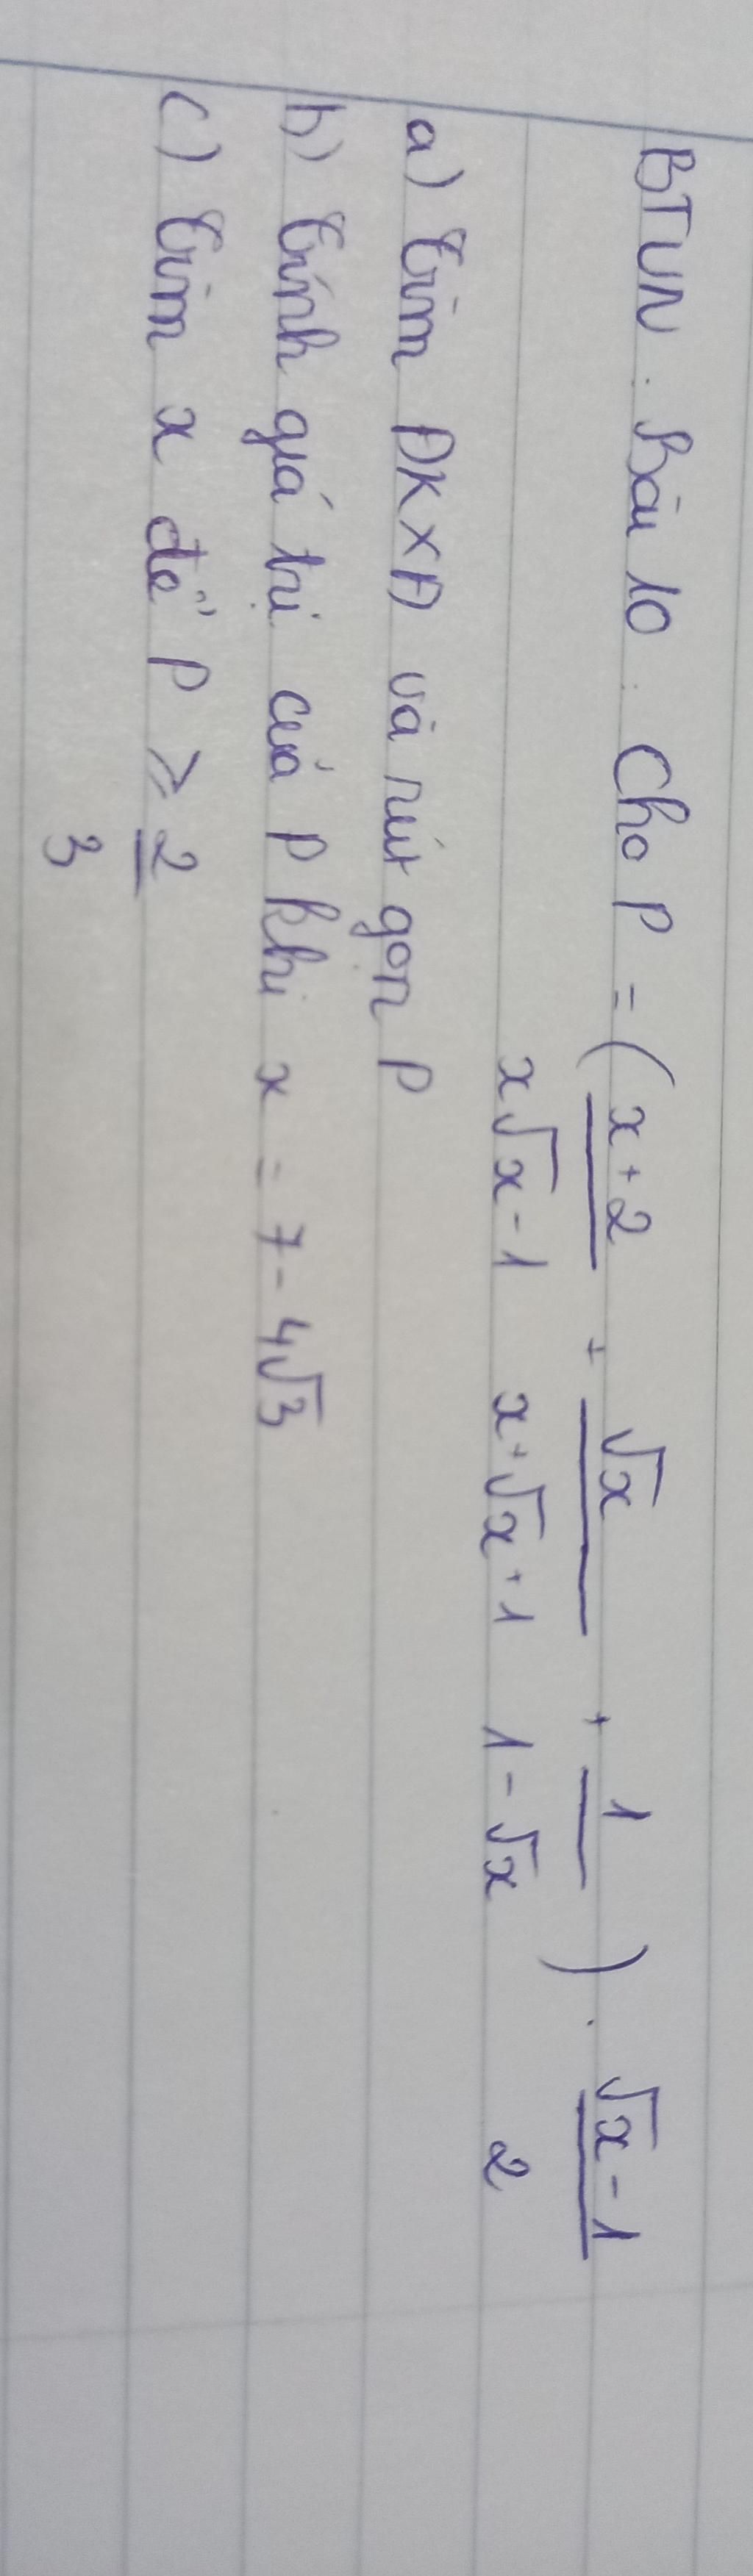 BTVN. Bài 10: Cho P = ( x+2 / x√x - 1 + √x / x+√x+1 + 1 / 1-√x ) . √x - 1 / 2
a) Tìm ĐKXĐ và rút gọn P
b) Tính giá trị của P khi x = 7 - 4√3
c) Tìm x để P ≥ 2 / 3